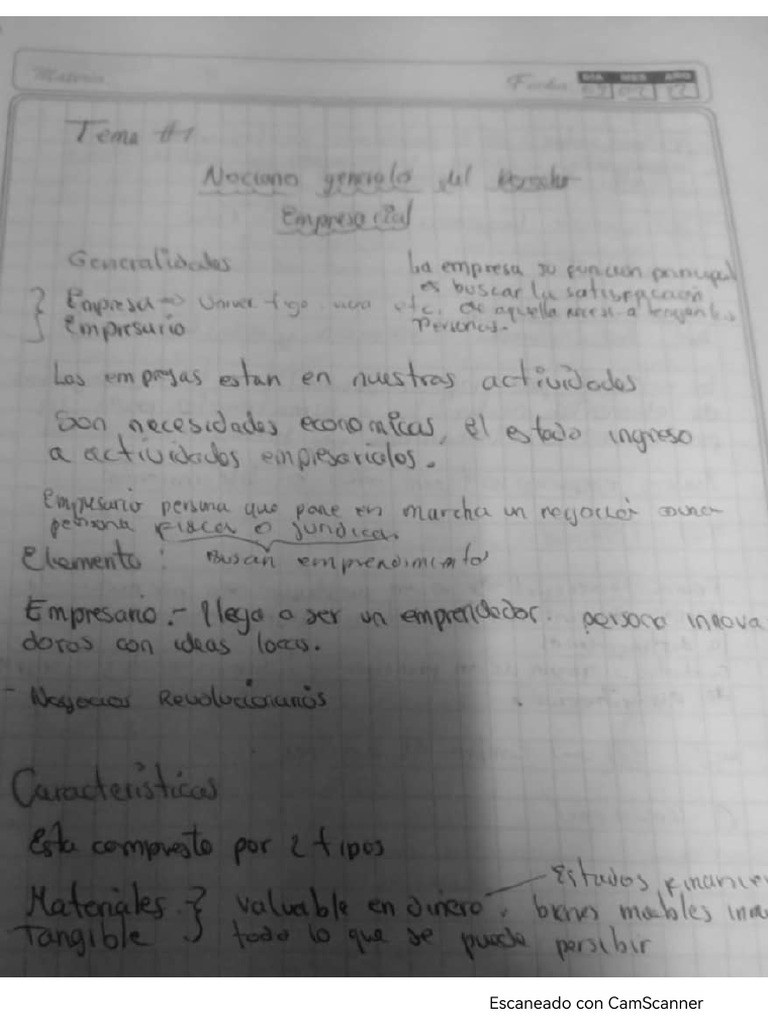 Materia
Fecha
DIA MES AÑO
Tema #1
Nociones generales del Derecho
Empresarial
Generalidades
La empresa su funcion principal
es buscar la satisfaccion
Empresa
etc. de aquella
Empresario
Personas.
Las empresas estan en nuestras actividades
Son necesidades economicas, el estado ingreso
a actividades empresariales.
Empresario persona que pone en marcha un negocio como
persona Fisica o Juridica.
Elemento : Buscan emprendimiento
Empresario.- llega a ser un emprendedor. persona innova
doras con ideas locas.
- Negocios Revolucionarios
Caracteristicas
Esta compuesto por 2 tipos
Estados Financie
Materiales } valuable en dinero, bienes muebles inm
Tangible todo lo que se puede persibir
Escaneado con CamScanner